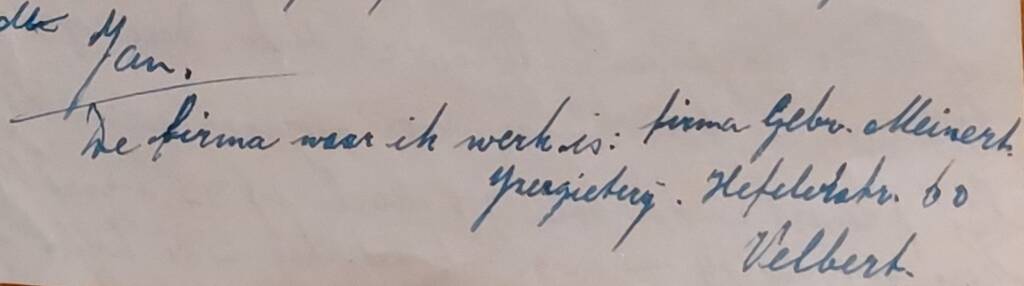 Jan.
De firma waar ik werk is: firma Gebr. Meinert.
Yzergietery. Hefelerstr. 60
Velbert.